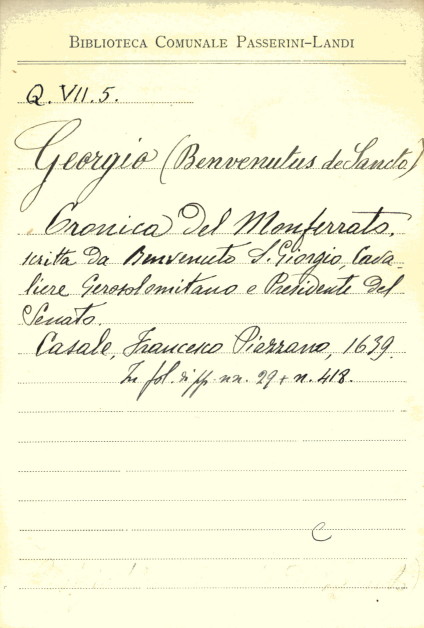 BIBLIOTECA COMUNALE PASSERINI-LANDI
Q. VII. 5.
Georgio (Benvenutus de Sancto)
Cronica del Monferrato.
scritta da Benvenuto S. Giorgio, Cava-
liere Gerosolomitano e Presidente del
Senato.
Casale, Francesco Piazzano, 1639.
In fol. di pp. nn. 29 + n. 418.
C